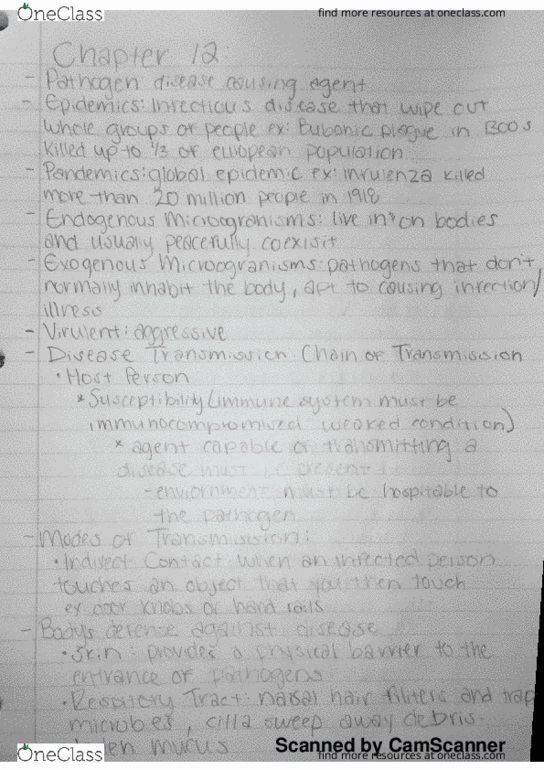 OneClass
find more resources at oneclass.com
Chapter 12:
- Pathogen: disease causing agent
- Epidemics: Infectious disease that wipe out
whole groups of people ex: Bubonic plague in 1300s
killed up to 1/3 of european population
- Pandemics: global epidemic ex: influenza killed
more than 20 million people in 1918
- Endogenous Microogranisms: live in + on bodies
and usually peacefully coexisit
- Exogenous Microogranisms: pathogens that don't
normally inhabit the body, apt to causing infection/
illness
- Virulent: aggressive
- Disease Transmission: Chain of Transmission
• Host Person
* Susceptibility (immune system must be
immunocompromised: weaked condition)
* agent capable of transmitting a
disease must be present
- enviornment must be hospitable to
the pathogen
- Modes of Transmission:
• Indirect Contact: when an infected person
touches an object that you then touch
ex door knobs or hand rails
- Body's defense against disease
• Skin: provides a physical barrier to the
entrance of pathogens
• Respitory Tract: nasal hair filters and trap
microbes, cilia sweep away debris
mucus
Scanned by CamScanner
OneClass
find more resources at oneclass.com